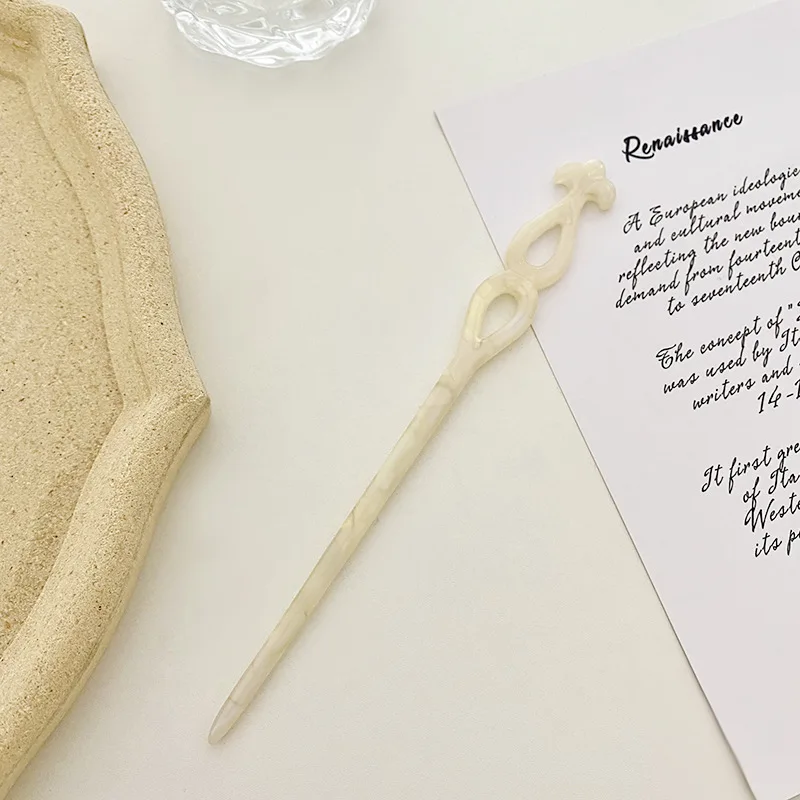 Renaissance
A European ideologic
and cultural moveme
reflecting the new bour
demand from fourteent
to seventeenth C
The concept of "
was used by It
writers and
14-1
It first gre
of Ita
Weste
its p